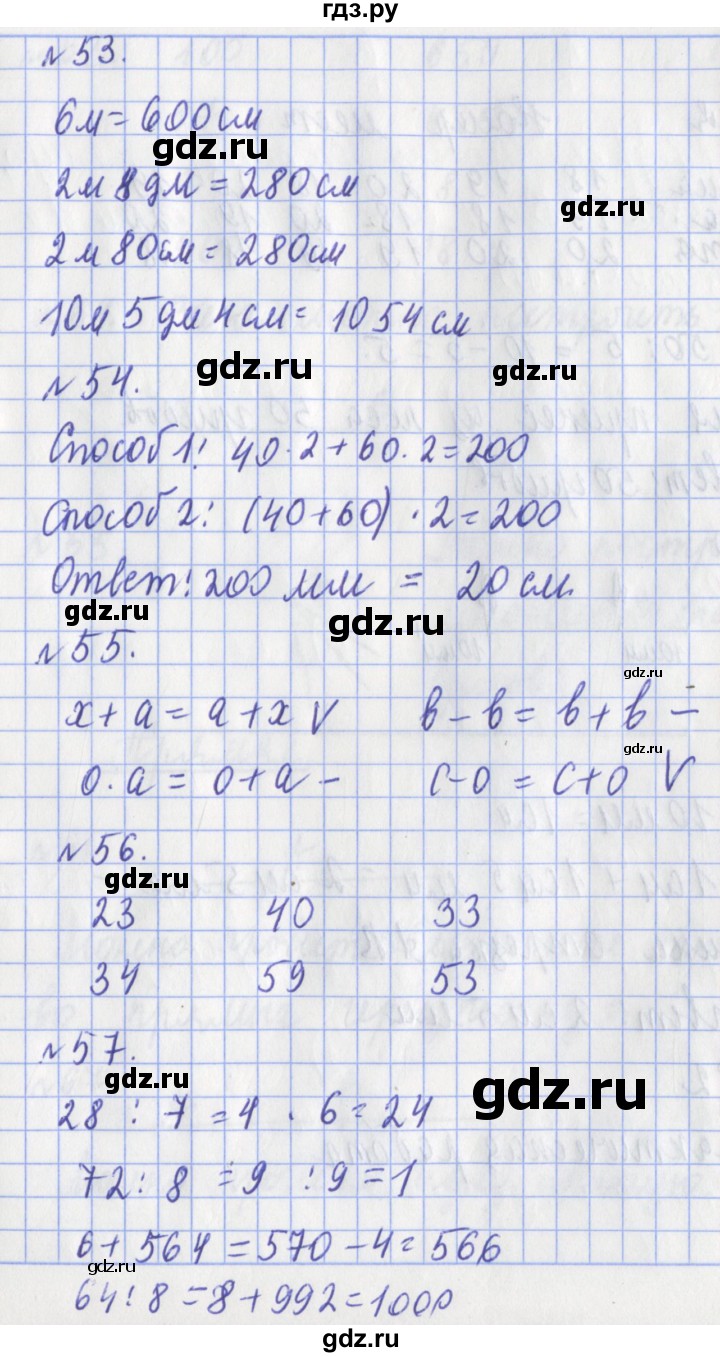 гдз.ру
№53.
6м = 600см
gdz.ru
2м 8дм = 280см
gdz.ru
2м 80см = 280см
10м 5дм 4см = 1054см
gdz.ru gdz.ru
№54.
Способ 1! 40·2+60·2=200
Способ 2: (40+60)·2=200
Ответ! 200 мм = 20 см.
gdz.ru gdz.ru
№55.
gdz.ru
x+a=a+x V в-в=в+в -
gdz.ru
0·a=0+a - c-0=c+0 V
№56.
gdz.ru
23 40 33
34 59 53
№57.
gdz.ru
28 : 7 = 4 · 6 = 24
72 : 8 = 9 : 9 = 1
6+564=570-4=566
gdz.ru
64:8=8+992=1000
gdz.ru
gdz.ru